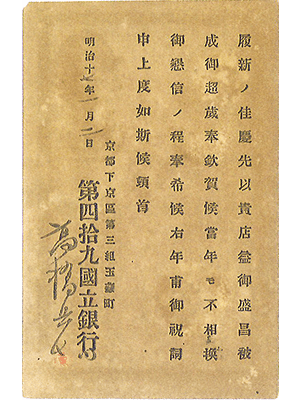 履新ノ佳慶先以貴店益御盛昌被
成御超歳奉欽賀候當年モ不相換
御懇信ノ程奉希候右年甫御祝詞
申上度如斯候頓首
明治十 年一月一日
京都下京區第三組玉蔵町
第四拾九國立銀行
高橋